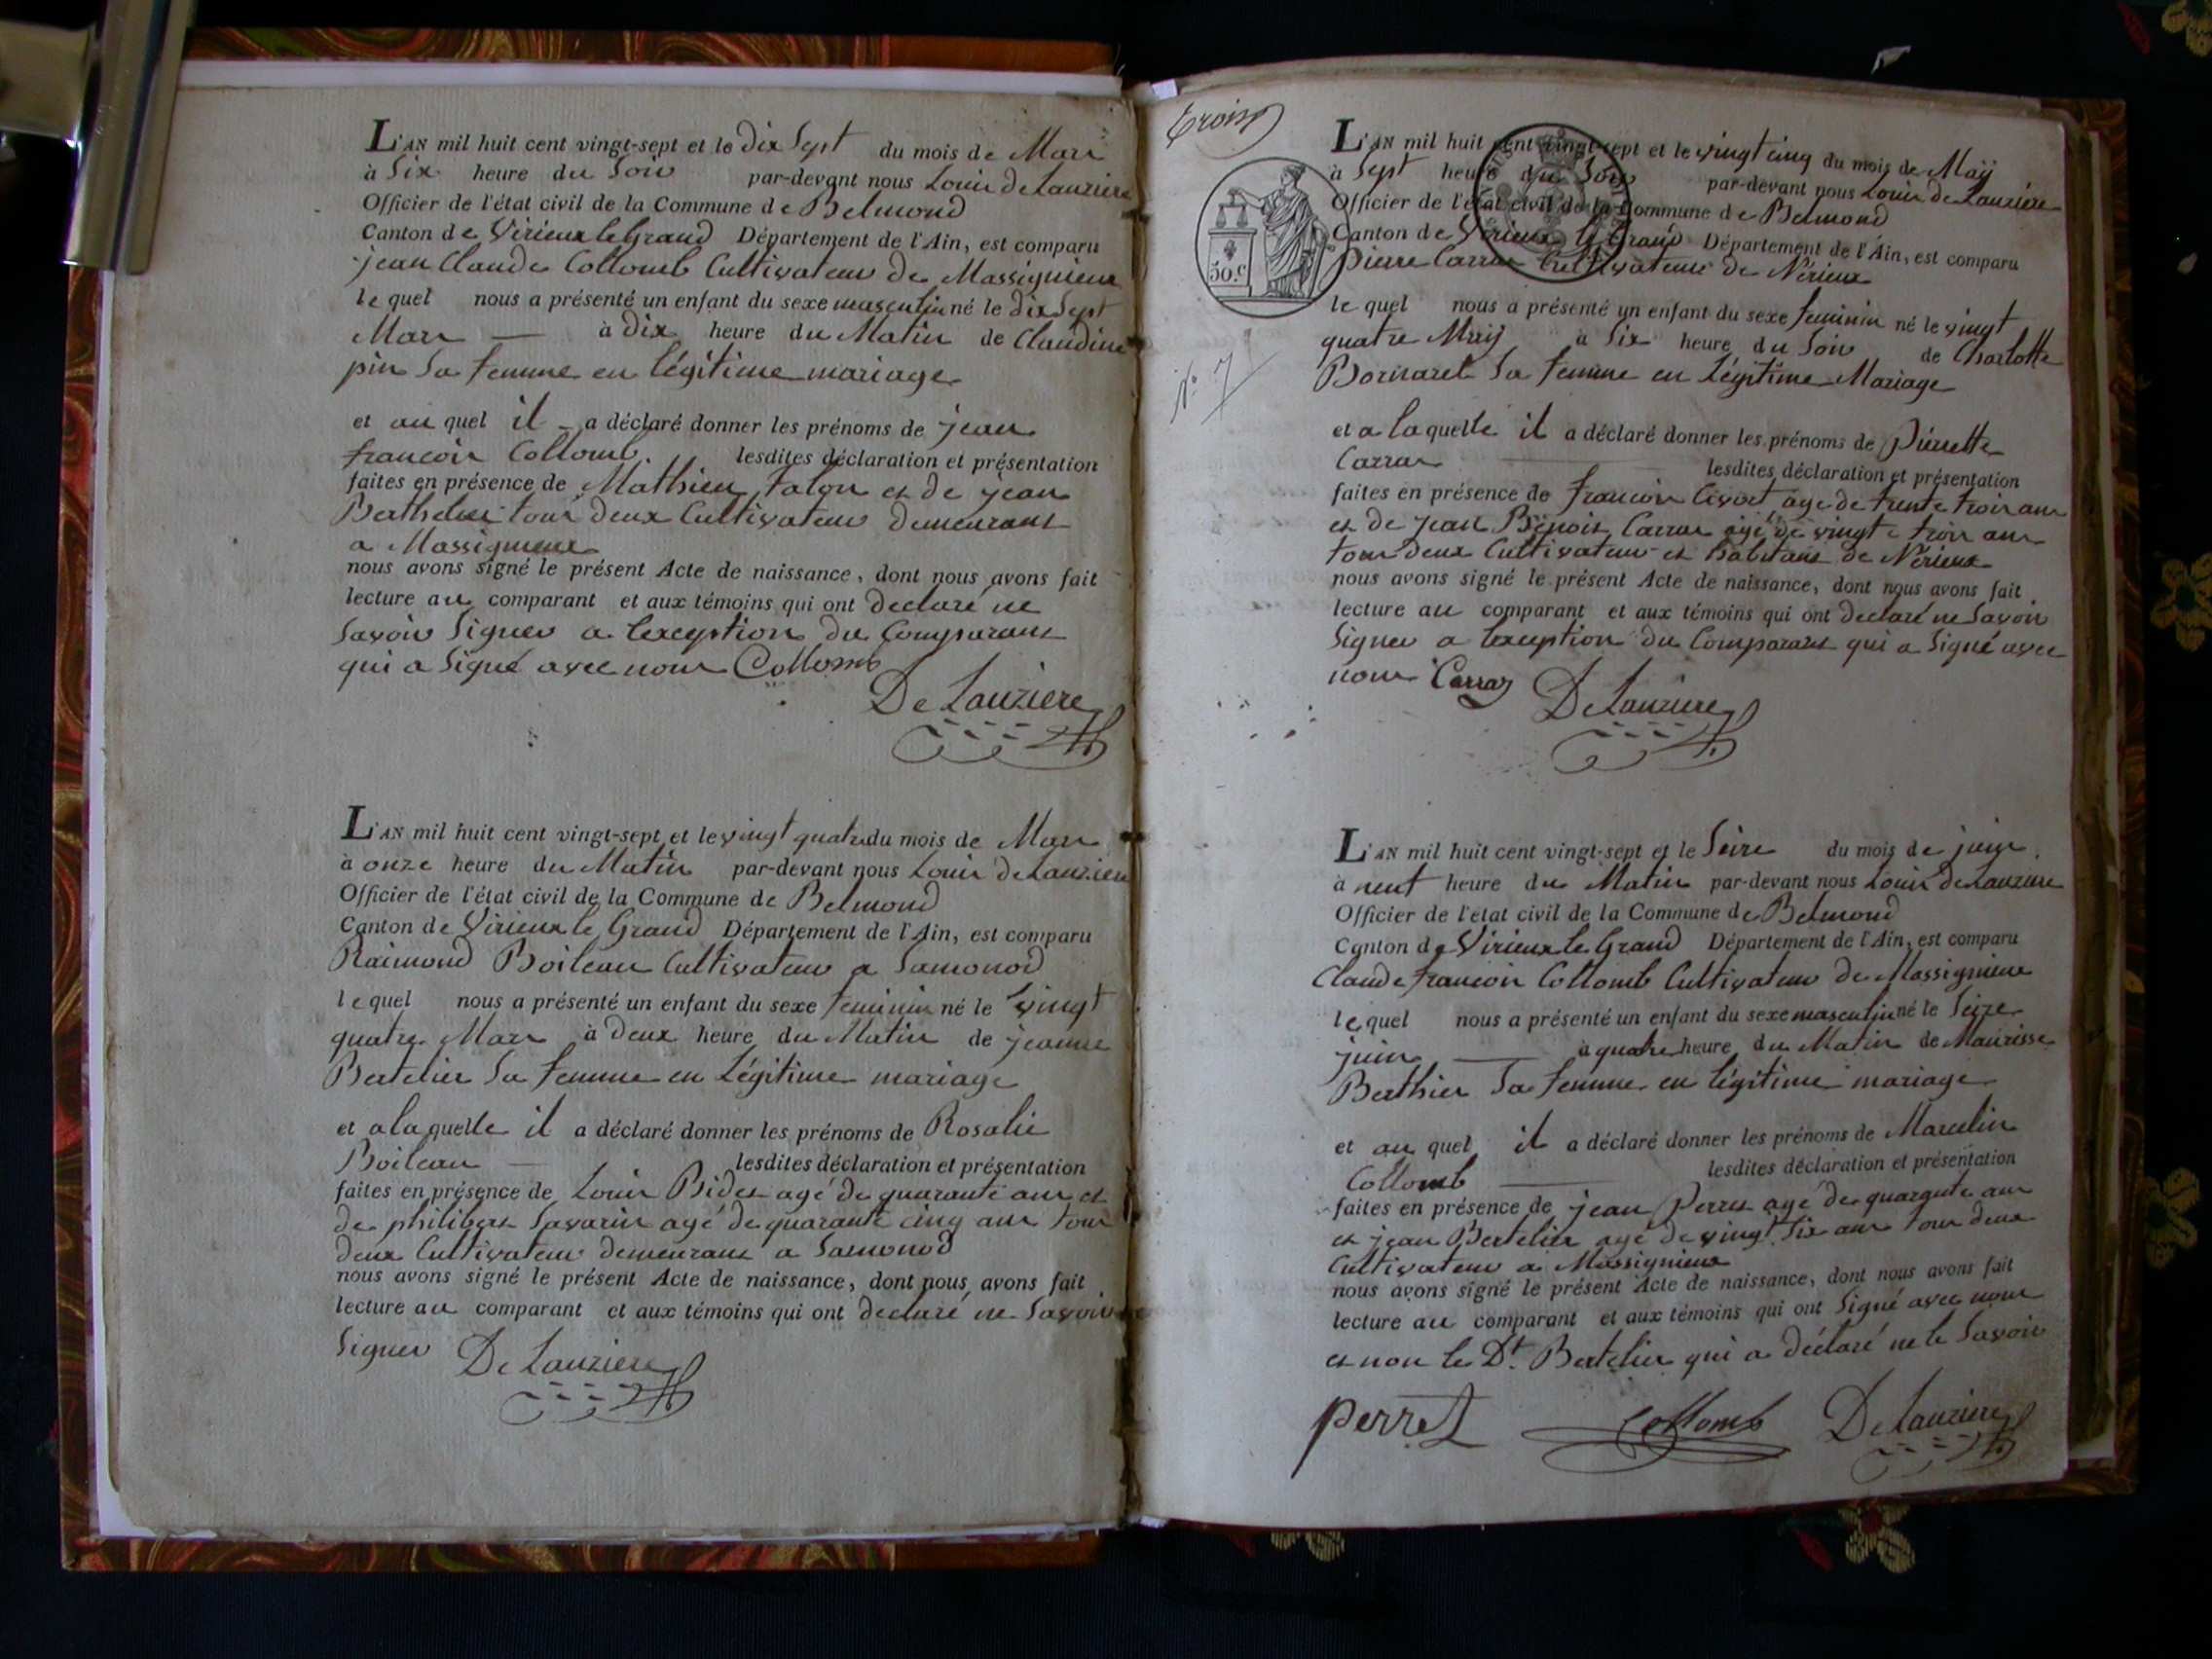 L'AN mil huit cent vingt-sept et le Dix Sept du mois de Mars
à Six heure du Soir par-devant nous Louis deLauziere
Officier de l'état civil de la Commune de Belmond
Canton de Virieux le Grand Département de l'Ain, est comparu
jean Claude Collomb Cultivateur de Massignieux
lequel nous a présenté un enfant du sexe masculin né le Dix Sept
Mars — à Dix heure du Matin de Claudine
pin Sa femme en légitime mariage
et au quel il a déclaré donner les prénoms de jean
francois Collomb. lesdites déclaration et présentation
faites en présence de Mathieu talon et de jean
Berthelier tous deux Cultivateur demeurant
a Massignieux
nous avons signé le présent Acte de naissance, dont nous avons fait
lecture au comparant et aux témoins qui ont declaré ne
Savoir Signer a lexception du Comparant
qui a Signé avec nous Collomb
De Lauziere
L'AN mil huit cent vingt-sept et le vingt quatre du mois de Mars
à onze heure du Matin par-devant nous Louis deLauziere
Officier de l'état civil de la Commune de Belmond
Canton de Virieux le Grand Département de l'Ain, est comparu
Raimond Boileau Cultivateur a Samonod
lequel nous a présenté un enfant du sexe feminin né le vingt
quatre Mars à Deux heure du Matin de jeanne
Bertelier Sa femme en Légitime mariage
et a laquelle il a déclaré donner les prénoms de Rosalie
Boileau — lesdites déclaration et présentation
faites en présence de Louis Bidet agé de quarante ans et
de philibert Savarin agé de quarante cinq ans tous
deux Cultivateur demeurant a Samonod
nous avons signé le présent Acte de naissance, dont nous avons fait
lecture au comparant et aux témoins qui ont declaré ne Savoir
Signer De Lauziere
trois
50.c
N° 7
L'AN mil huit cent vingt-sept et le vingt cinq du mois de Maÿ
à Sept heure du Soir par-devant nous Louis de Lauziere
Officier de l'état civil de la Commune de Belmond
Canton de Virieux le Grand Département de l'Ain, est comparu
pierre Carraz Cultivateur de Nérieux
lequel nous a présenté un enfant du sexe feminin né le vingt
quatre Maÿ à Six heure du Soir de Charlotte
Bornarel Sa femme en Légitime Mariage
et a laquelle il a déclaré donner les prénoms de Pierrette
Carraz — lesdites déclaration et présentation
faites en présence de francois agé de trente trois ans
et de jean Benoit Carraz agé de vingt trois ans
tous deux Cultivateur et habitans de Nérieux
nous avons signé le présent Acte de naissance, dont nous avons fait
lecture au comparant et aux témoins qui ont declaré ne Savoir
Signer a lexception du Comparant qui a Signé avec
nous Carraz De Lauziere
L'AN mil huit cent vingt-sept et le Seize du mois de juin
à neuf heure du Matin par-devant nous Louis deLauziere
Officier de l'état civil de la Commune de Belmond
Canton de Virieux le Grand Département de l'Ain, est comparu
Claude francois Collomb Cultivateur de Massignieux
lequel nous a présenté un enfant du sexe masculin né le Seize
juin — à quatre heure du Matin de Maurisse
Berthier Sa femme en légitime mariage
et au quel il a déclaré donner les prénoms de Marcelin
Collomb — lesdites déclaration et présentation
faites en présence de jean Perret agé de quarante ans
et jean Bertelier agé de vingt Six ans tous deux
Cultivateur a Massignieux
nous avons signé le présent Acte de naissance, dont nous avons fait
lecture au comparant et aux témoins qui ont Signé avec nous
et non le Dt. Bertelier qui a déclaré ne le Savoir
perret Collomb De Lauziere